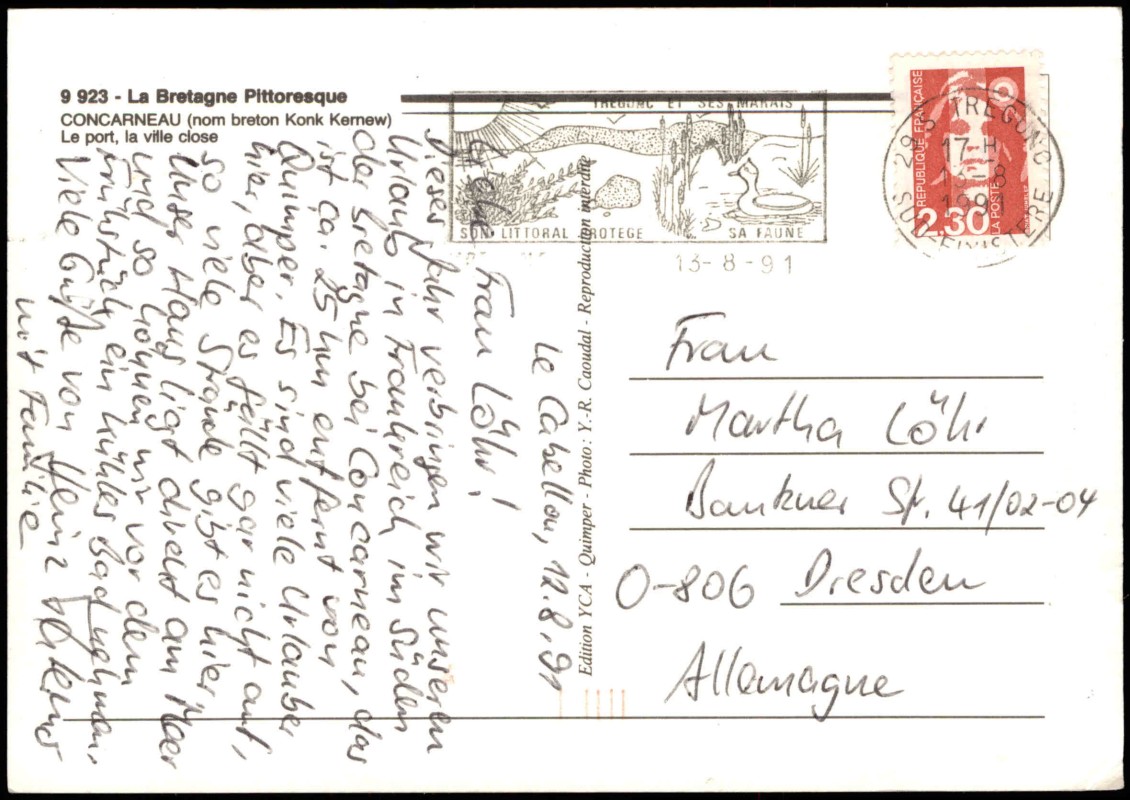 9 923 - La Bretagne Pittoresque
CONCARNEAU (nom breton Konk Kernew)
Le port, la ville close
TREGUNC ET SES MARAIS
SON LITTORAL PROTEGE SA FAUNE
13-8-91
29 TREGUNC
17 H
13-8
1991
SUD-FINISTERE
REPUBLIQUE FRANÇAISE
2.30
LA POSTE
Edition YCA - Quimper - Photo: Y.-R. Caoudal - Reproduction interdite
Le Cabellou, 12.8.91
Liebe Frau Löhr!
Dieses Jahr verbringen wir unseren
Urlaub in Frankreich im Süden
der Bretagne bei Concarneau, das
ist ca. 25 km entfernt von
Quimper. Es sind viele Urlauber
hier, aber es fällt gar nicht auf,
so viele Strände gibt es hier.
Unser Haus ligt direkt am Meer
und so können wir vor dem
Frühstück ein kühles Bad nehmen.
Viele Grüße von Heinz
mit Familie
Frau
Martha Löhr
Bautzner Str. 41/02-04
O-806 Dresden
Allemagne